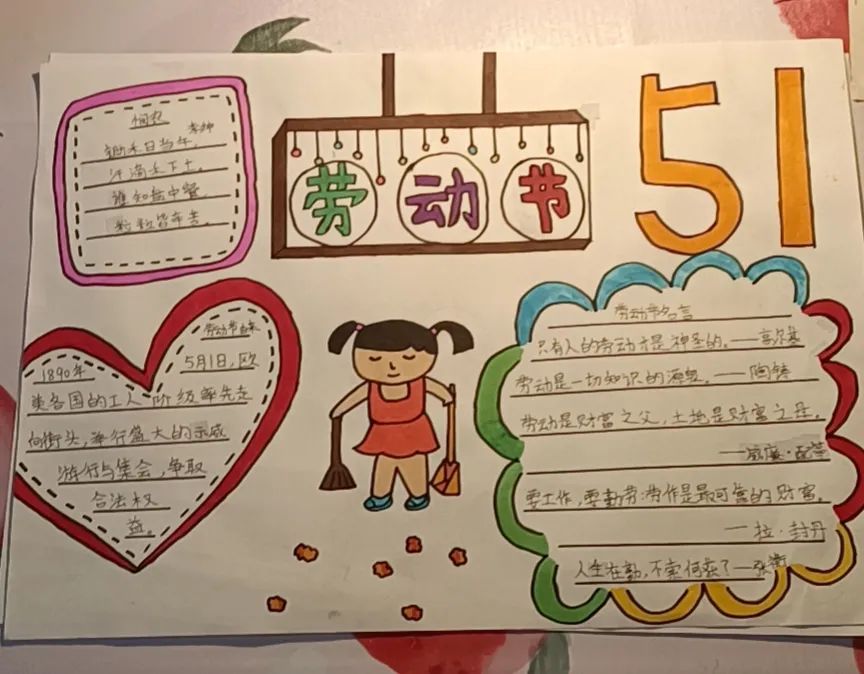 悯农
李绅
锄禾日当午,
汗滴禾下土。
谁知盘中餐,
粒粒皆辛苦。
劳动节
51
劳动节由来
1890年
5月1日,欧
美各国的工人阶级率先走
向街头,举行盛大的示威
游行与集会,争取
合法权
益。
劳动节名言
只有人的劳动才是神圣的。——高尔基
劳动是一切知识的源泉。——陶铸
劳动是财富之父,土地是财富之母。
——威廉·配第
要工作,要勤劳:劳作是最可靠的财富。
—拉·封丹
人生在勤,不索何获?—张衡